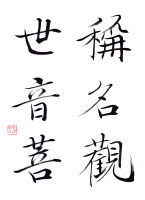 稱名觀
世音菩